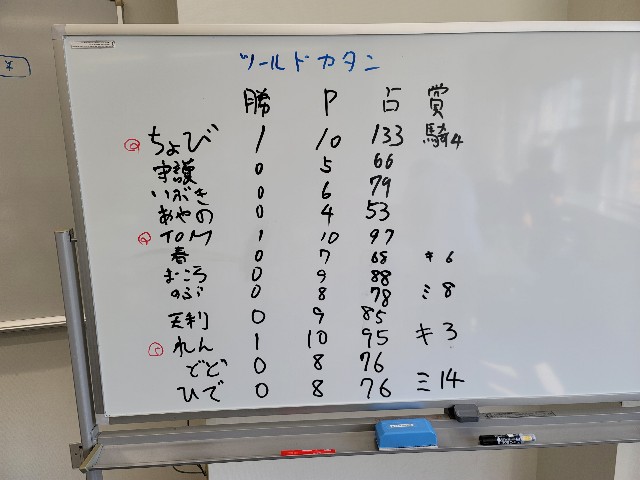 ツールドカタン
勝 P 占 賞
ちょび 1 10 133 騎4
守護 0 5 66
いぶき 0 6 79
あやの 0 4 53
TOM 1 10 97
春 0 7 68 キ 6
まころ 0 9 88
のぶ 0 8 78 ミ 8
天利 0 9 85
れん 1 10 95 キ 3
どど 0 8 76
ひで 0 8 76 ミ 14
¥